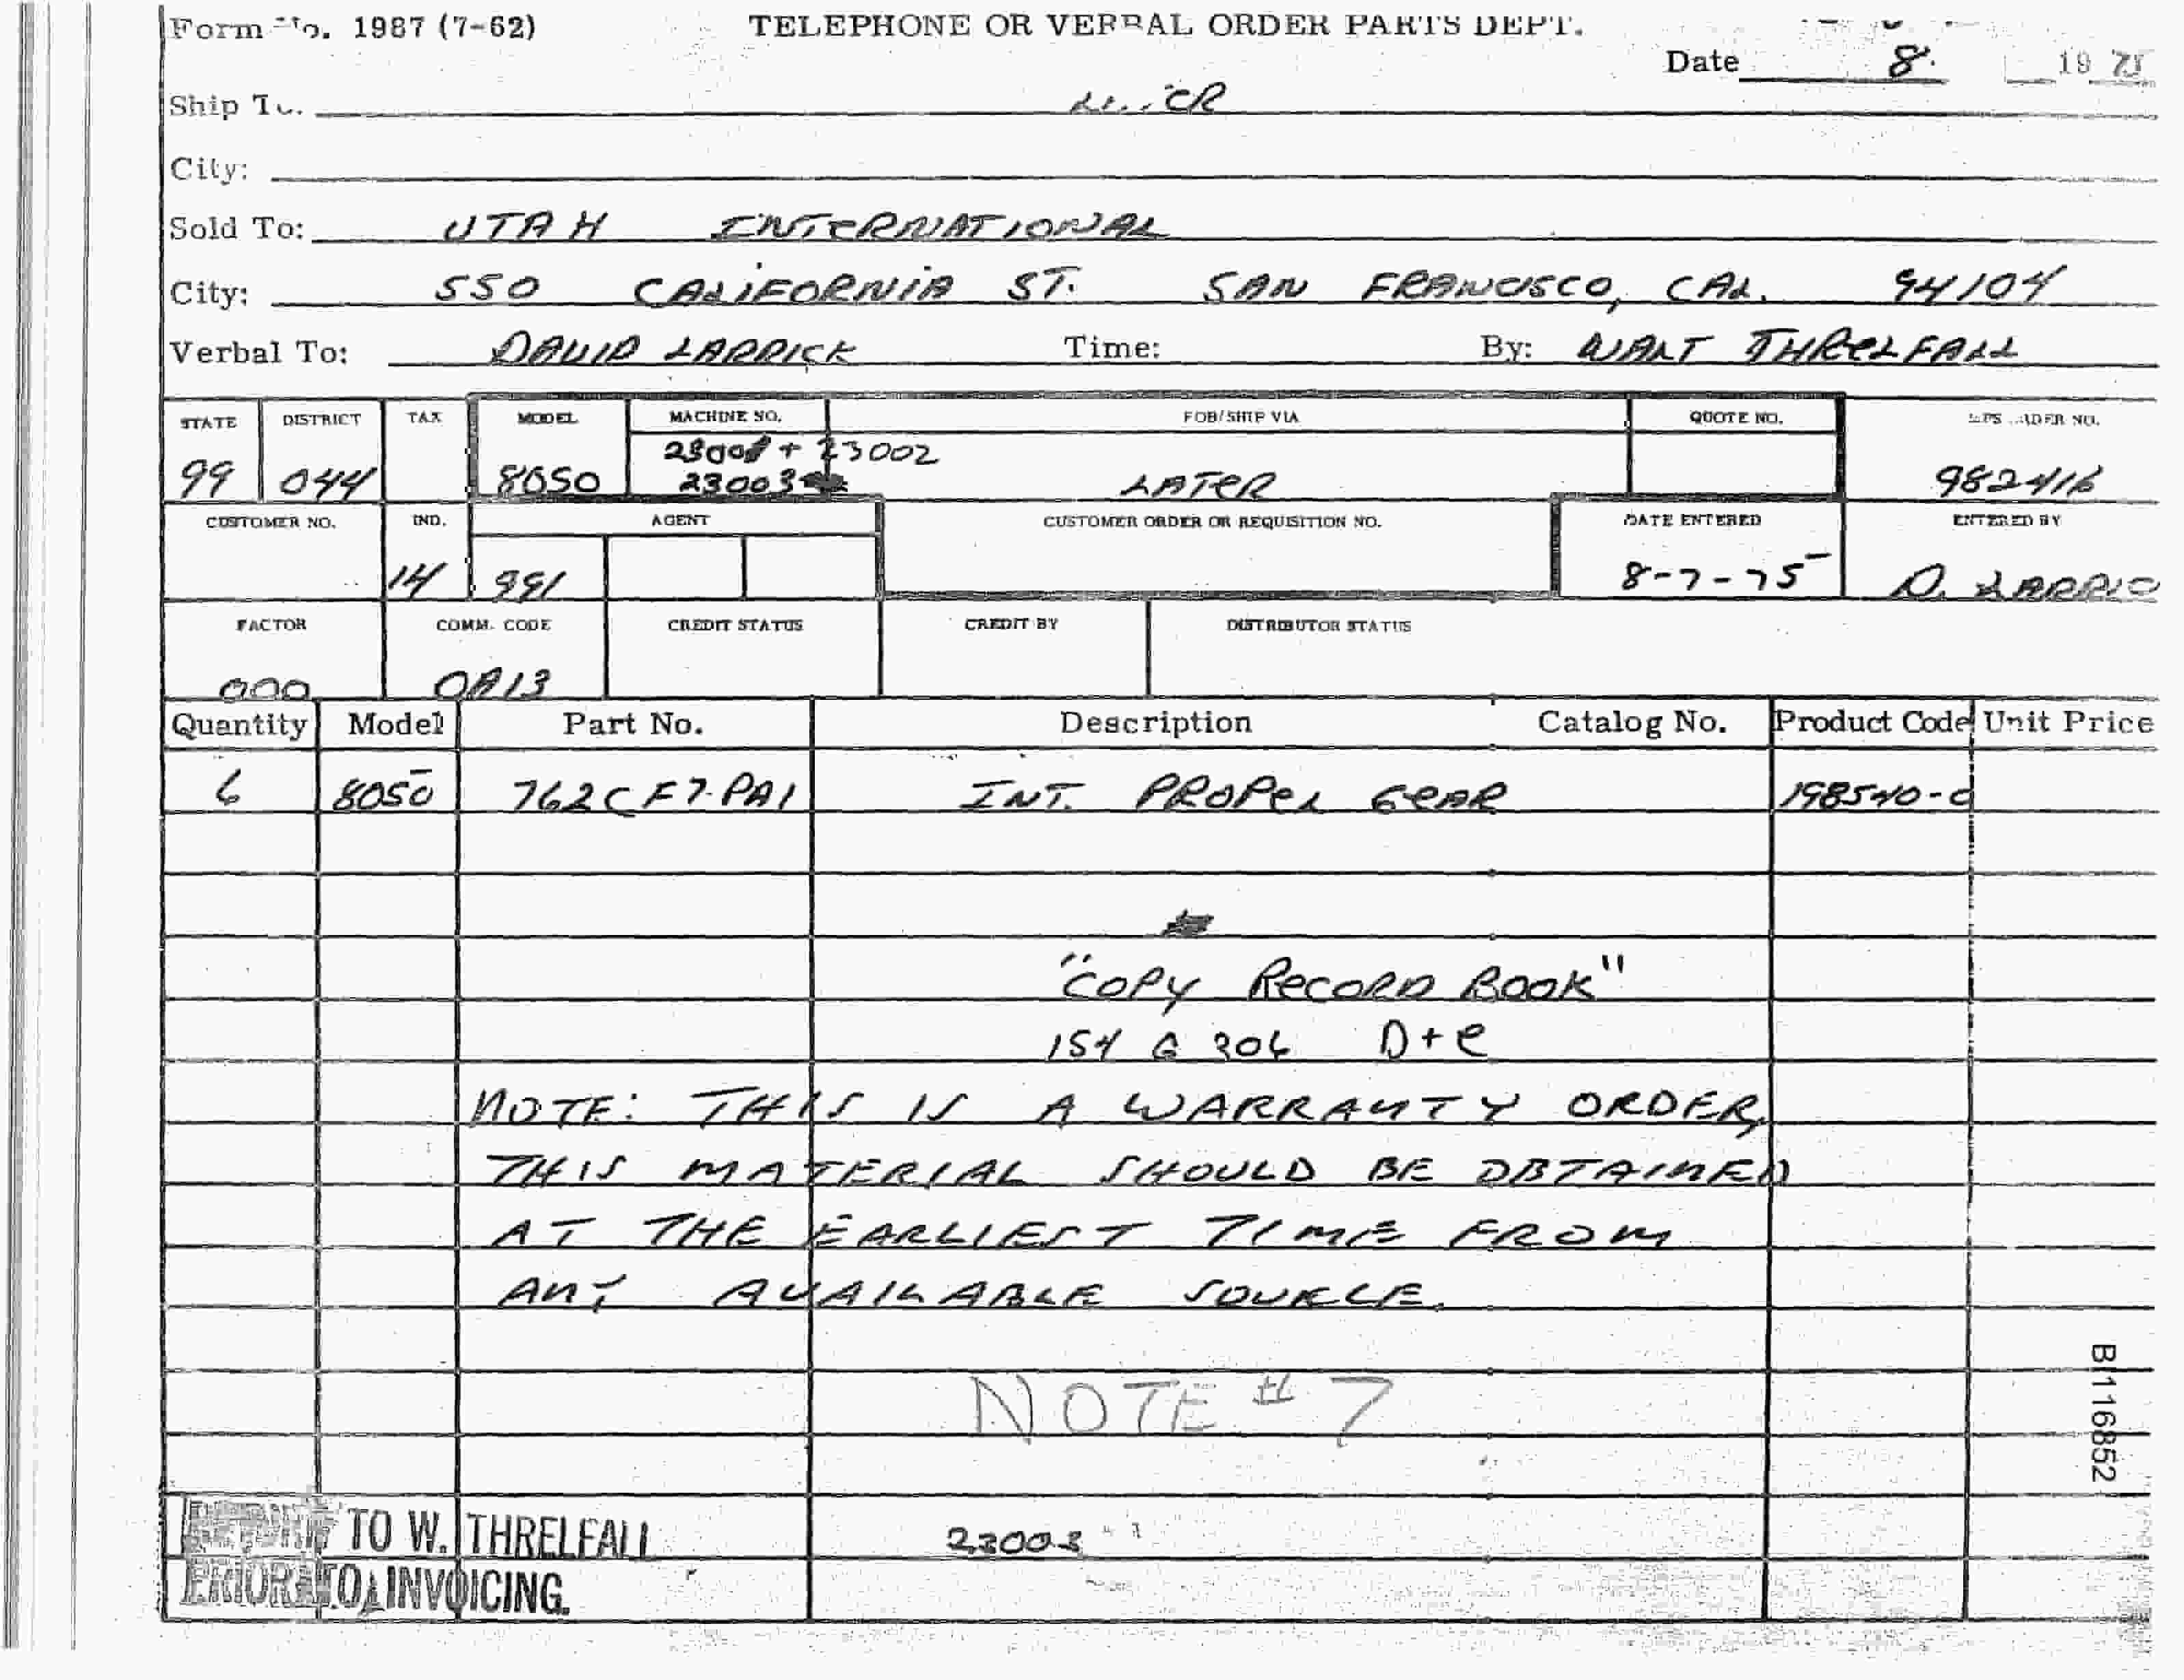 Form No. 1987 (7-62) TELEPHONE OR VERBAL ORDER PARTS DEPT.
Date 8 19 75
Ship To.
City:
Sold To: UTAH INTERNATIONAL
City: 550 CALIFORNIA ST. SAN FRANCISCO, CAL. 94104
Verbal To: DAVID LARRICK Time: By: WALT THRELFALL
STATE DISTRICT TAX MODEL MACHINE NO. FOB/SHIP VIA QUOTE NO. ORDER NO.
23001 + 23002
99 044 8050 23003 LATER 982416
CUSTOMER NO. IND. AGENT CUSTOMER ORDER OR REQUISITION NO. DATE ENTERED ENTERED BY
14 991 8-7-75 D. LARRIC
FACTOR COMM. CODE CREDIT STATUS CREDIT BY DISTRIBUTOR STATUS
000 0A13
Quantity Model Part No. Description Catalog No. Product Code Unit Price
6 8050 762CF7-PA1 INT. PROPEL GEAR 198540-0
"COPY RECORD BOOK"
154 G 306 D+E
NOTE: THIS IS A WARRANTY ORDER,
THIS MATERIAL SHOULD BE OBTAINED
AT THE EARLIEST TIME FROM
ANY AVAILABLE SOURCE.
NOTE #7
B116852
RETURN TO W. THRELFALL 23003
PRIOR TO INVOICING.